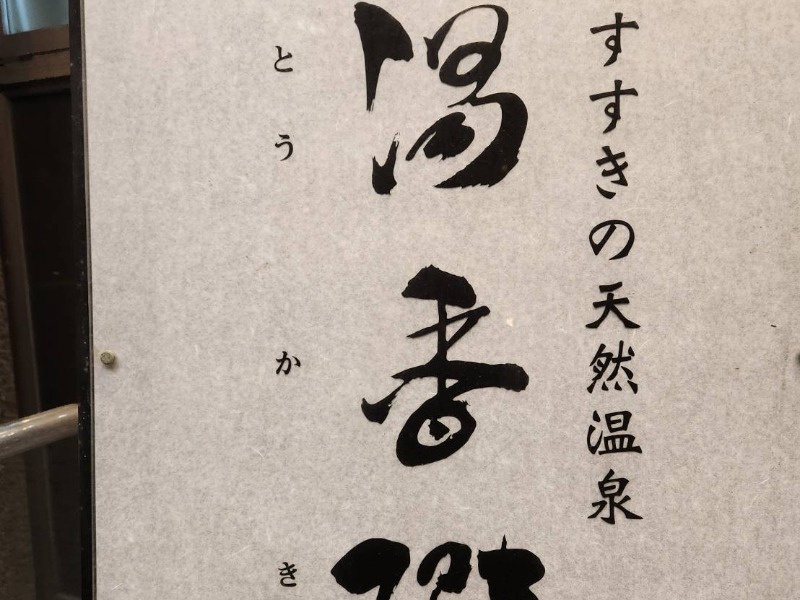 すすきの天然温泉
湯香
とうかき